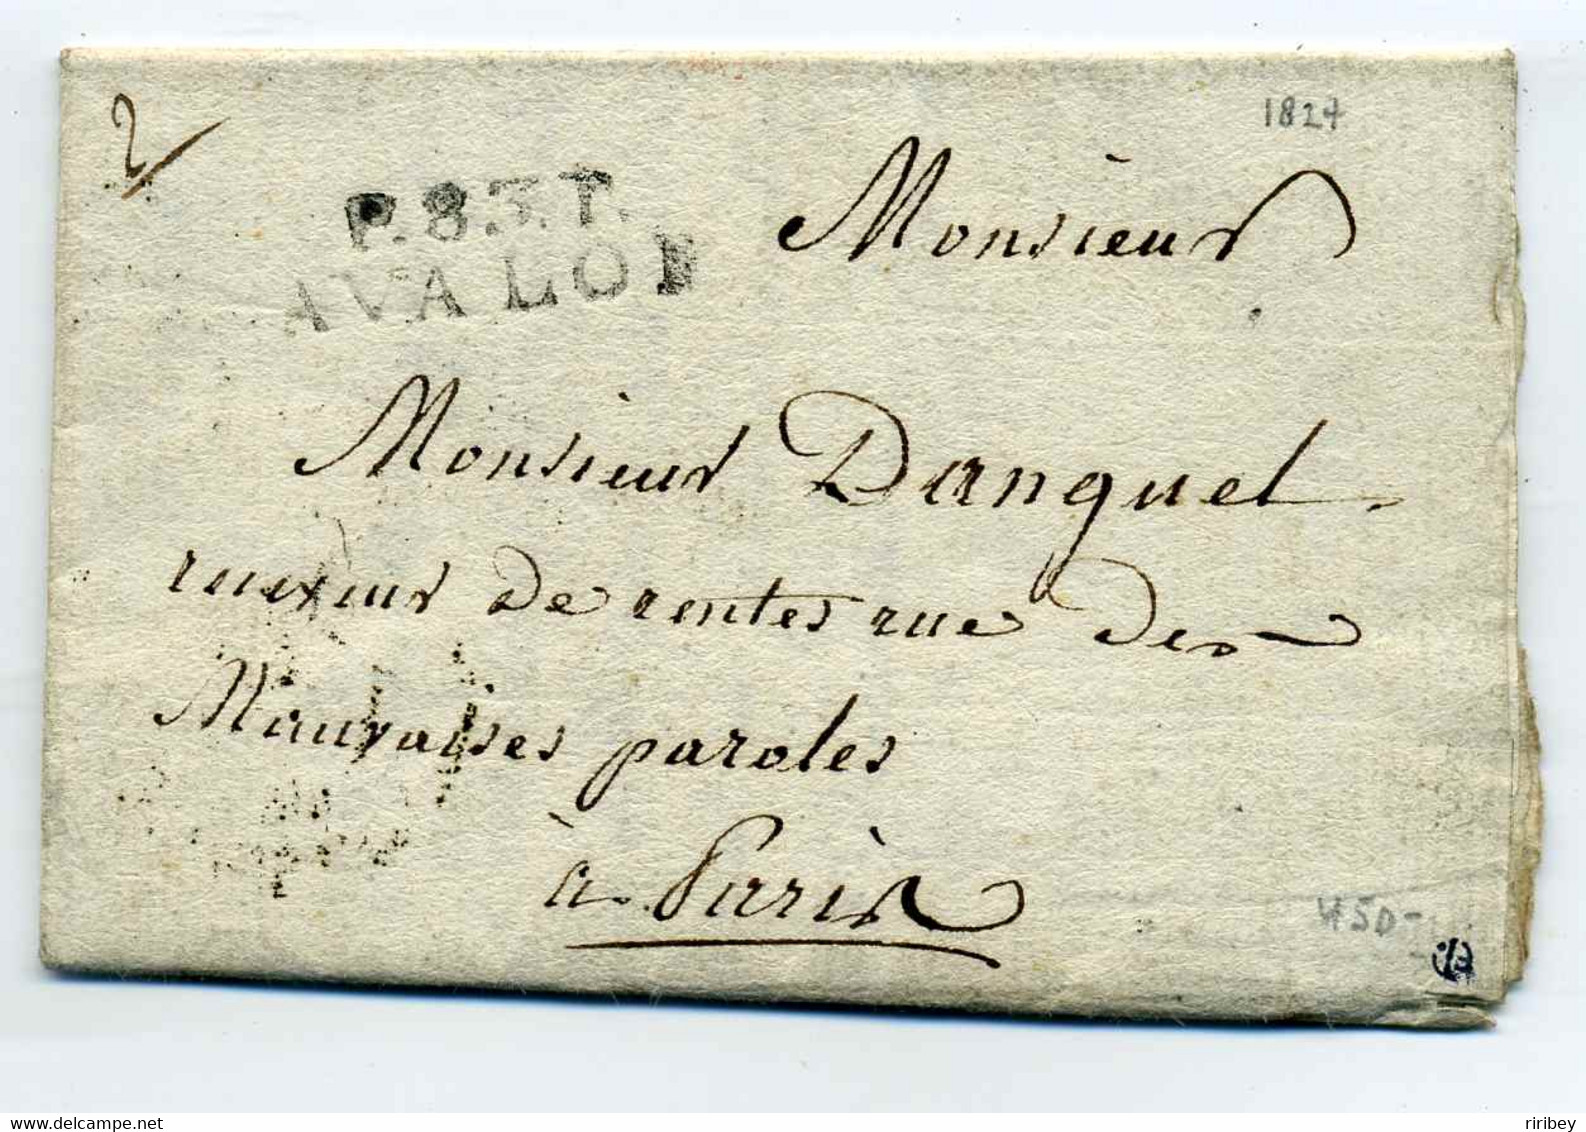 2
1824
P.83.P.
AVALON
Monsieur
Monsieur Danquel
receveur de rentes rue des
Mauvaises paroles
à Paris
450-
riribey